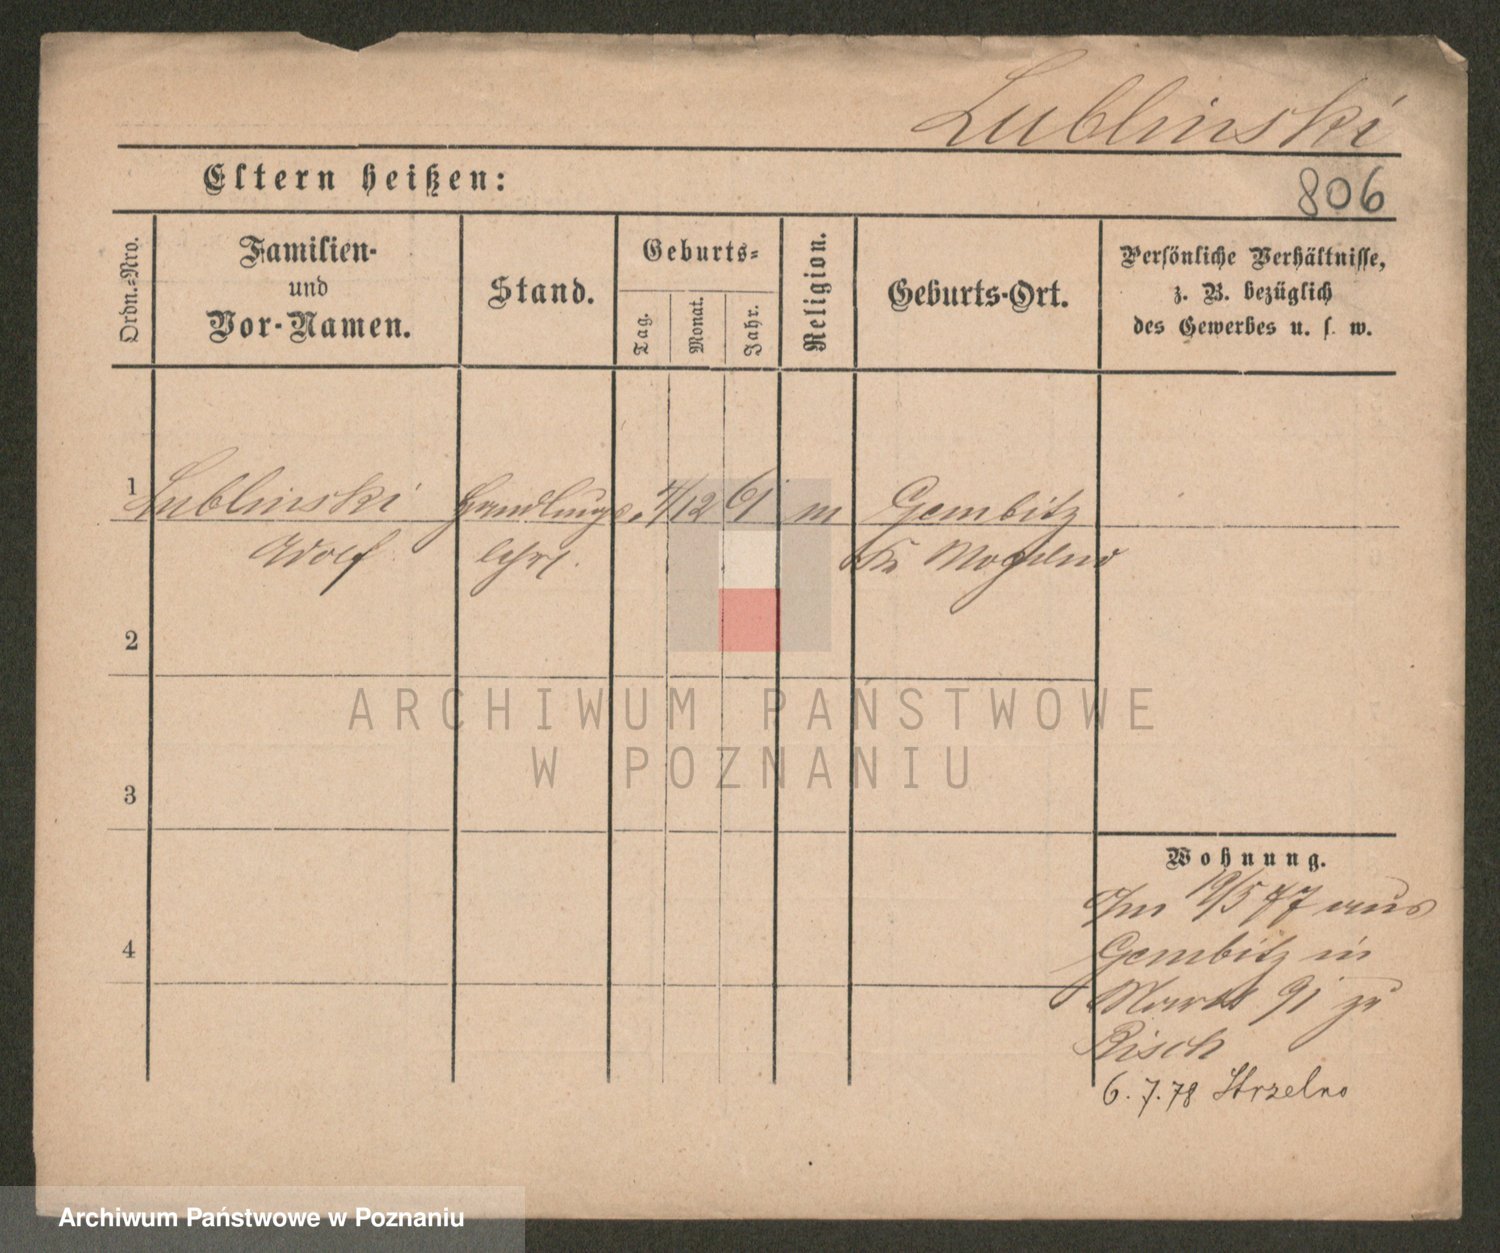 Lublinski
Eltern heißen:
806
Ordn.-Nro.
Familien-
und
Vor-Namen.
Stand.
Geburts-
Tag.
Monat.
Jahr.
Religion.
Geburts-Ort.
Persönliche Verhältnisse,
z. B. bezüglich
des Gewerbes u. s. w.
1 Lublinski Handlungs. 12 61 m Gembitz
Adolf lehrl. Kr Mogilno
2
ARCHIWUM PAŃSTWOWE
W POZNANIU
3
Wohnung.
19/5 77 aus
4
Gembitz in
Markt 91 zu
Risch
6.7.78 Strzelno
Archiwum Państwowe w Poznaniu